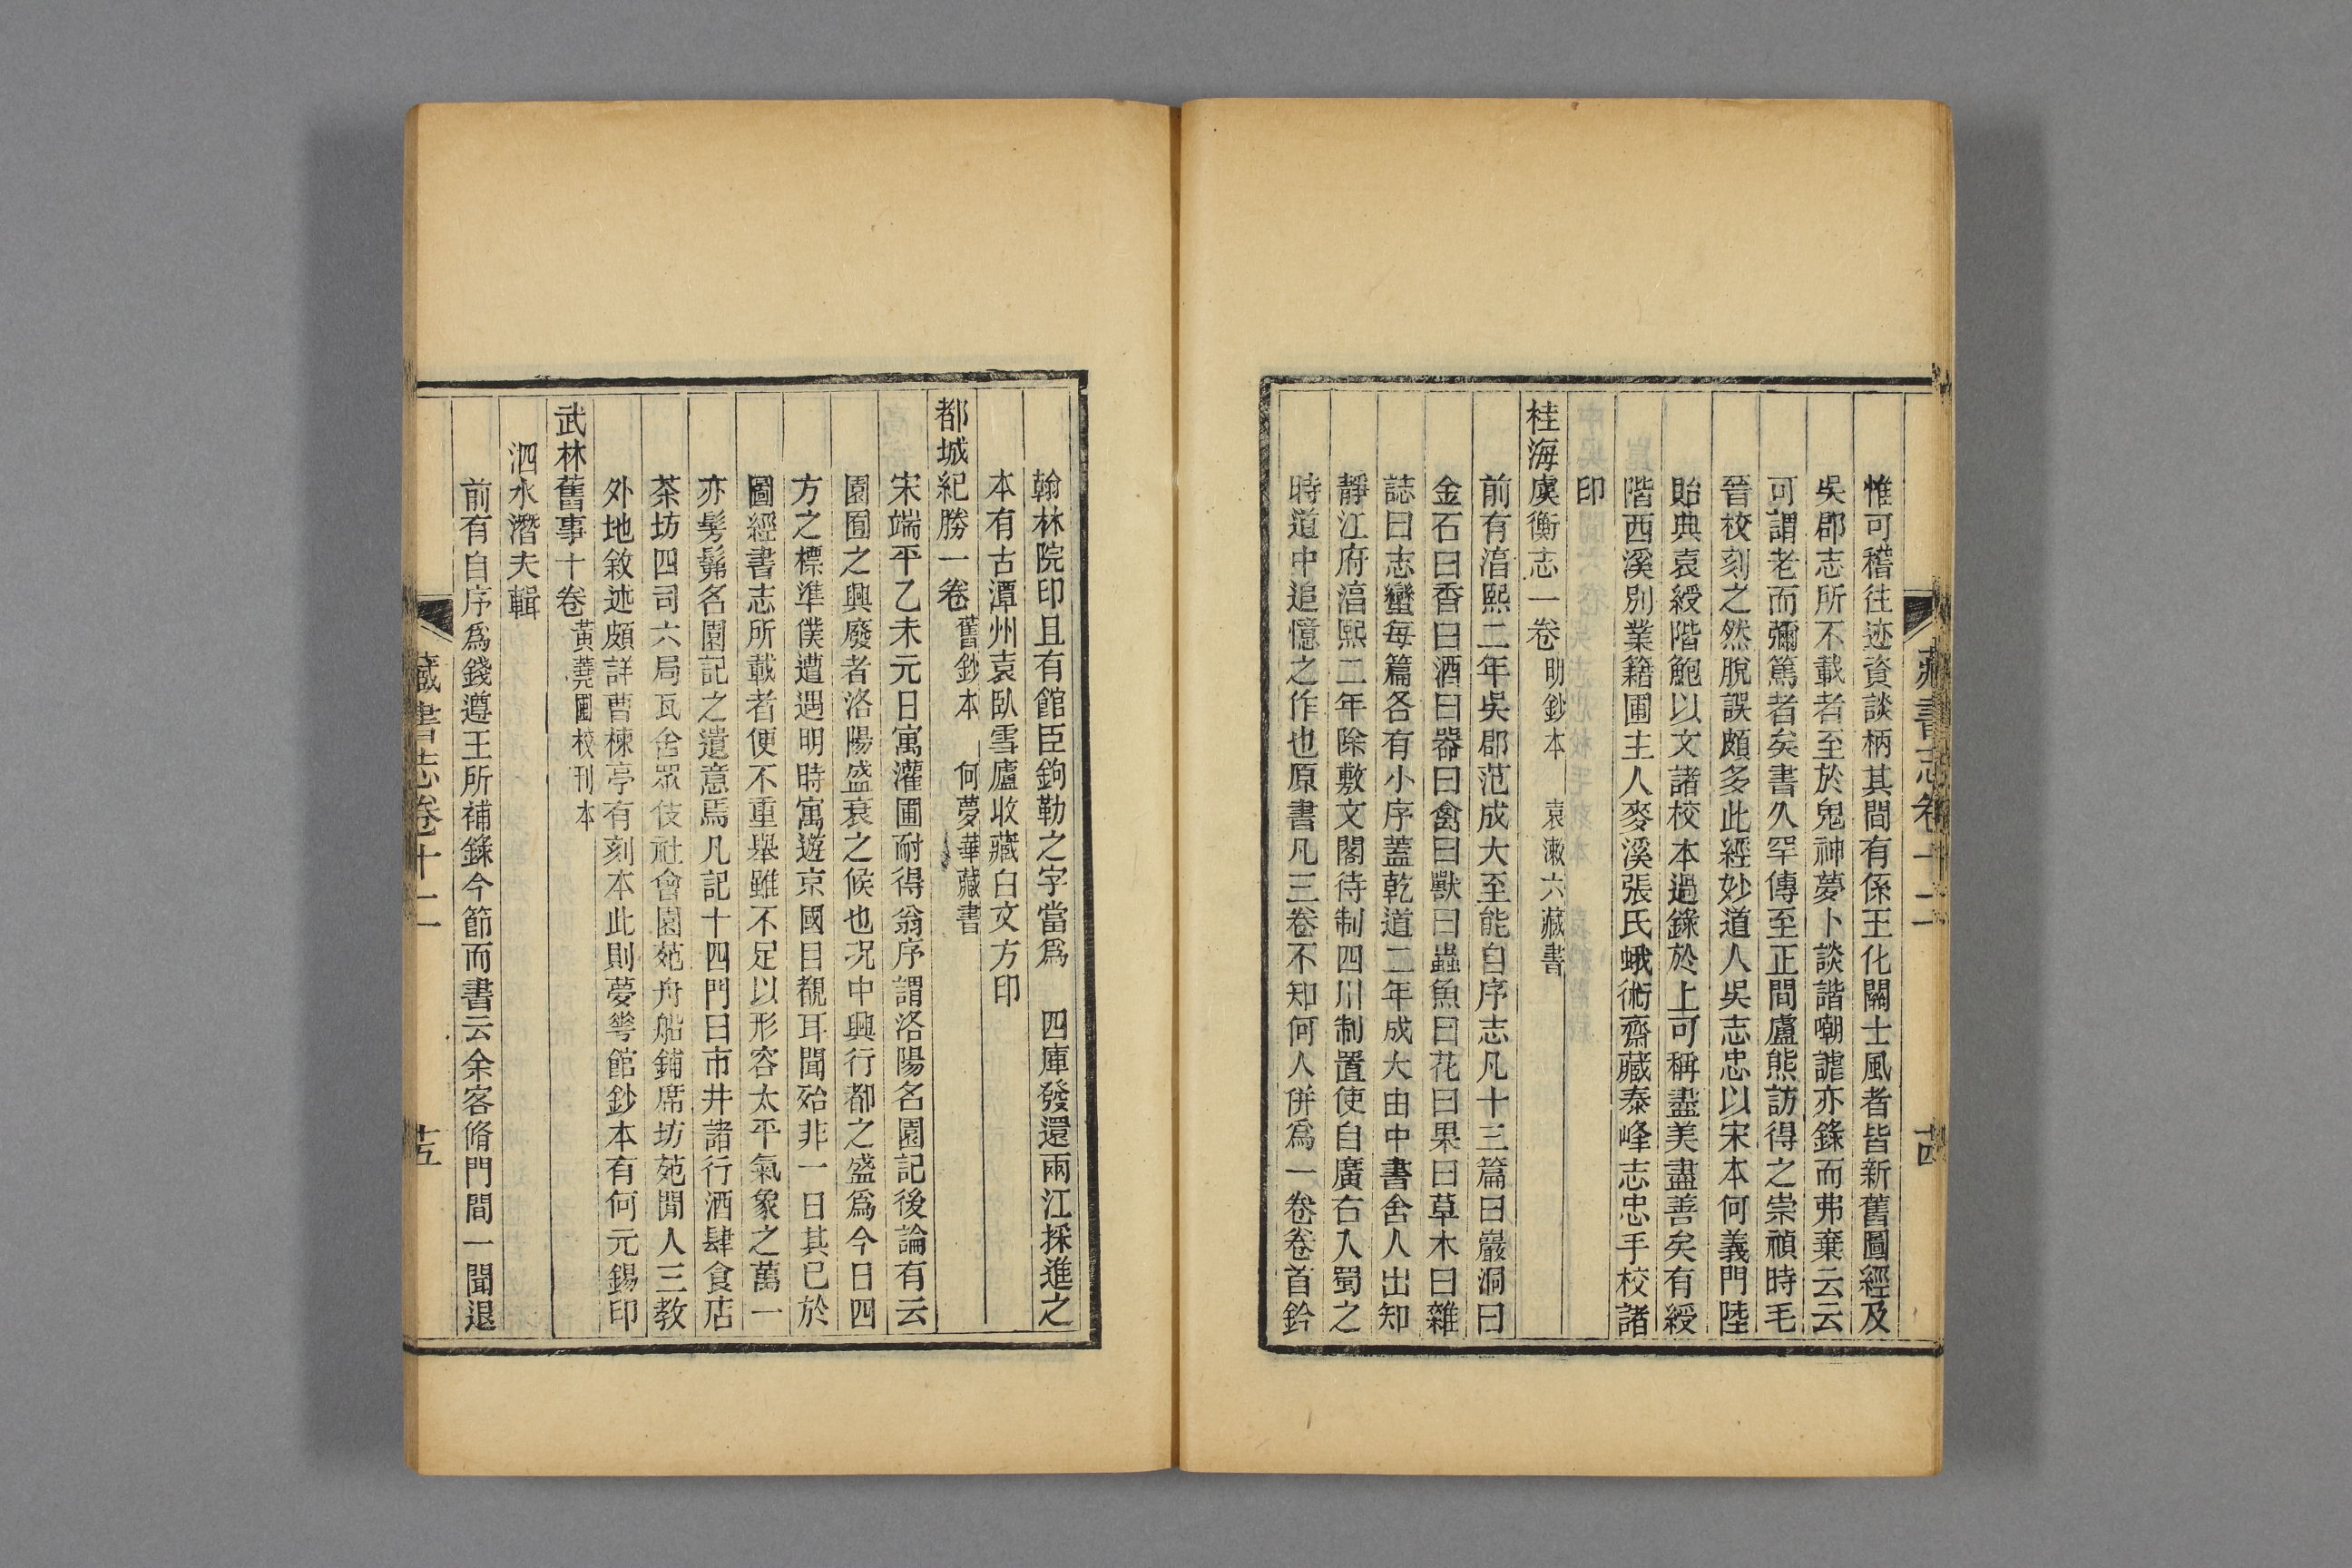 藏書志卷十二
十四
惟可稽往迹資談柄其間有係王化關士風者皆新舊圖經及
吳郡志所不載者至於鬼神夢卜談諧嘲謔亦錄而弗棄云云
可謂老而彌篤者矣書久罕傳至正間盧熊訪得之崇禎時毛
晉校刻之然脫誤頗多此經妙道人吳志忠以宋本何義門陸
貽典袁綬階鮑以文諸校本過錄於上可稱盡美盡善矣有綬
階西溪別業籍圃主人麥溪張氏蛾術齋藏泰峰志忠手校諸
印
桂海虞衡志一卷 明鈔本 袁漱六藏書
前有淳熙二年吳郡范成大至能自序志凡十三篇曰巖洞曰
金石曰香曰酒曰器曰禽曰獸曰蟲魚曰花曰果曰草木曰雜
誌曰志蠻每篇各有小序蓋乾道二年成大由中書舍人出知
靜江府淳熙二年除敷文閣待制四川制置使自廣右入蜀之
時道中追憶之作也原書凡三卷不知何人併爲一卷卷首鈐
翰林院印且有館臣鉤勒之字當爲 四庫發還兩江採進之
本有古潭州袁臥雪廬收藏白文方印
都城紀勝一卷 舊鈔本 何夢華藏書
宋端平乙未元日寓灌圃耐得翁序謂洛陽名園記後論有云
園囿之興廢者洛陽盛衰之候也況中興行都之盛爲今日四
方之標準僕遭遇明時寓遊京國目覩耳聞殆非一日其已於
圖經書志所載者便不重舉雖不足以形容太平氣象之萬一
亦髣髴名園記之遺意焉凡記十四門曰市井諸行酒肆食店
茶坊四司六局瓦舍眾伎社會園苑舟船鋪席坊苑閒人三教
外地敘述頗詳曹楝亭有刻本此則夢華館鈔本有何元錫印
武林舊事十卷 黃蕘圃校刊本
泗水潛夫輯
前有自序爲錢遵王所補錄今節而書云余客脩門間一聞退
藏書志卷十二
十五